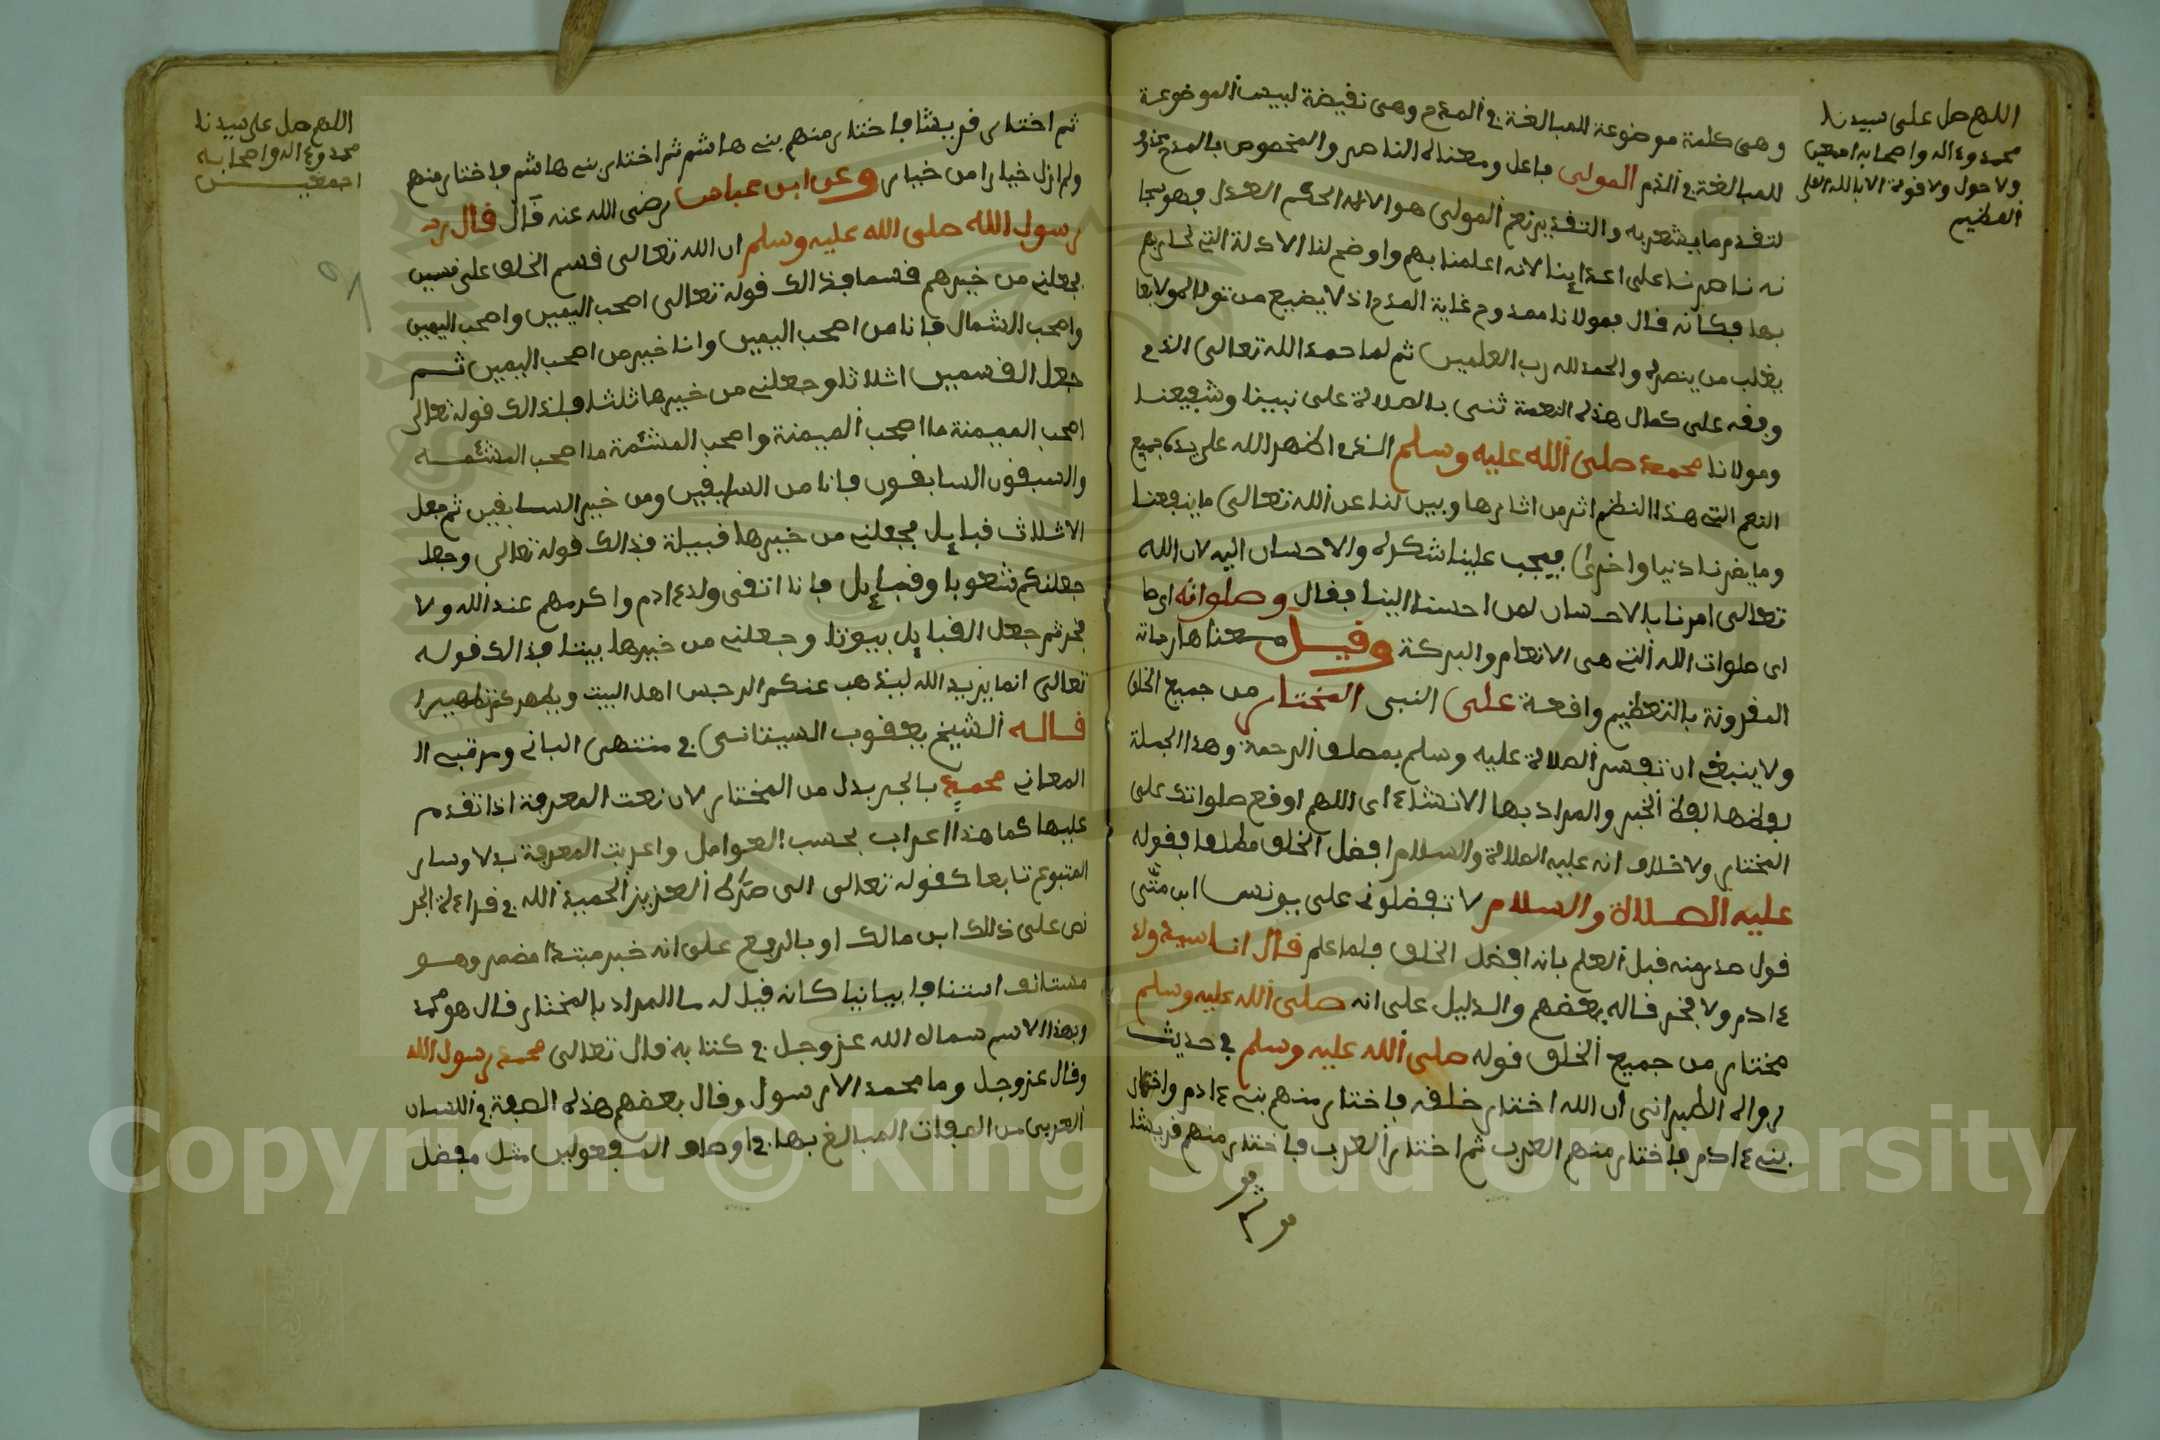 اللهم صل على سيدنا
محمد وءاله واصحابه اجمعين
ولا حول ولا قوة الا بالله العلي
العظيم
وهي كلمة موضوعة للمبالغة في المدح وهي نقيضة لبيس الموضوعة
للمبالغة في الذم المولى فاعل ومعناه الناصر والمخصوص بالمدح محذوف
لتقدم ما يشعر به والتقدير نعم المولى هو الاله الحكم العدل فهو سبحا
نه ناصرنا على اعدايِنا لانه اعلمنا بهم واوضح لنا الادلة التي نحاربهم
بها فكأنه قال فمولانا ممدوح غاية المدح اذ لا يضيع من تولاه مولا بها
يغلب من ينصره والحمد لله رب العلمين ثم لما حمد الله تعالى الذي
وفقه على كمال هذه النعمة ثنى بالصلاة على نبينا وشفيعنا
ومولانا محمد صلى الله عليه وسلم الذي اظهر الله على يده جميع
النعم التي هذا النظم اثر من اثارها وبين لنا عن الله تعالى ما ينفعنا
وما يضرنا دنيا واخرى فيجب علينا شكره والاحسان اليه لان الله
تعالى امرنا بالاحسان لمن احسن الينا فقال وصلواته اي صا
اي صلوات الله التي هي الانعام والبركة وقيل معناها رحماته
المقرونة بالتعظيم واقعة على النبي المختار من جميع الخلق
ولا ينبغي ان تفسر الصلاة عليه وسلم بمطلق الرحمة وهذا الجملة
لفظها لفظ الخبر والمراد بها الانشاء اي اللهم اوقع صلواتك على
المختار ولا خلاف انه عليه الصلاة والسلام افضل الخلق مطلقا فقوله
عليه الصلاة والسلام لا تفضلوني على يونس ابن متّى
قول صدر منه قبل العلم بانه افضل الخلق فلما علم قال انا سيد ولد
ءادم ولا فخر قاله بعضهم والدليل على انه صلى الله عليه وسلم
مختار من جميع الخلق قوله صلى الله عليه وسلم في حديث
رواه الطبراني ان الله اختار خلقه فاختار منهم بني ءادم واختار
بني ءادم فاختار منهم العرب ثم اختار العرب فاختار منهم قريشا
اللهم صل على سيدنا
محمد وءاله واصحابه
اجمعين
ثم اختار قريشا فاختار منهم بني هاشم ثم اختار بني هاشم فاختار منهم
ولم ازل خيارا من خيار وعن ابن عباس رضي الله عنه قال قال
رسول الله صلى الله عليه وسلم ان الله تعالى قسم الخلق على قسمين
فجعلني من خيرهم قسما فذالك قوله تعالى اصحب اليمين واصحب اليمين
واصحب الشمال فانا من اصحب اليمين وانا خير من اصحب اليمين ثم
جعل القسمين اثلاثا وجعلني من خيرها ثلثا فلذالك قوله تعالى
اصحب الميمنة ما اصحب الميمنة واصحب المشئمة ما اصحب المشئمة
والسبقون السابقون فانا من السابقين ومن خير السابقين ثم جعل
الاثلاث قبايِل فجعلني من خيرها قبيلة فذالك قوله تعالى وجعل
جعلنكم شعوبا وقبايِل فانا اتقى ولد ءادم واكرمهم عند الله ولا
فخر ثم جعل القبايِل بيوتا وجعلني من خيرها بيتا فذالك قوله
تعالى انما يريد الله ليذهب عنكم الرجس اهل البيت ويطهركم تطهيرا
قاله الشيخ يعقوب السيتاني في منتهى الباني ومرقب ال
المعاني محمدٍ بالجر بدل من المختار لان نعت المعرفة اذا تقدم
عليها كما هنا اعراب بحسب العوامل واعربت المعرفة بدلا وصار
المتبوع تابعا كقوله تعالى الى صرٰط العزيز الحميد الله في قراءة الجر
نص على ذلك ابن مالك او بالرفع على انه خبر مبتدا مضمر وهو
مستانف استنافا بيانيا كانه قيل له ما المراد بالمختار قال هو محمد
وبهذا الاسم سماه الله عز وجل في كتابه قال تعالى محمد رسول الله
وقال عز وجل وما محمد الا رسول وقال بعضهم هذه الصفة في اللسان
العربي من الصفات المبالغ بها في اوصاف المفعولين مثل مفضل
Copyright © King Saud University